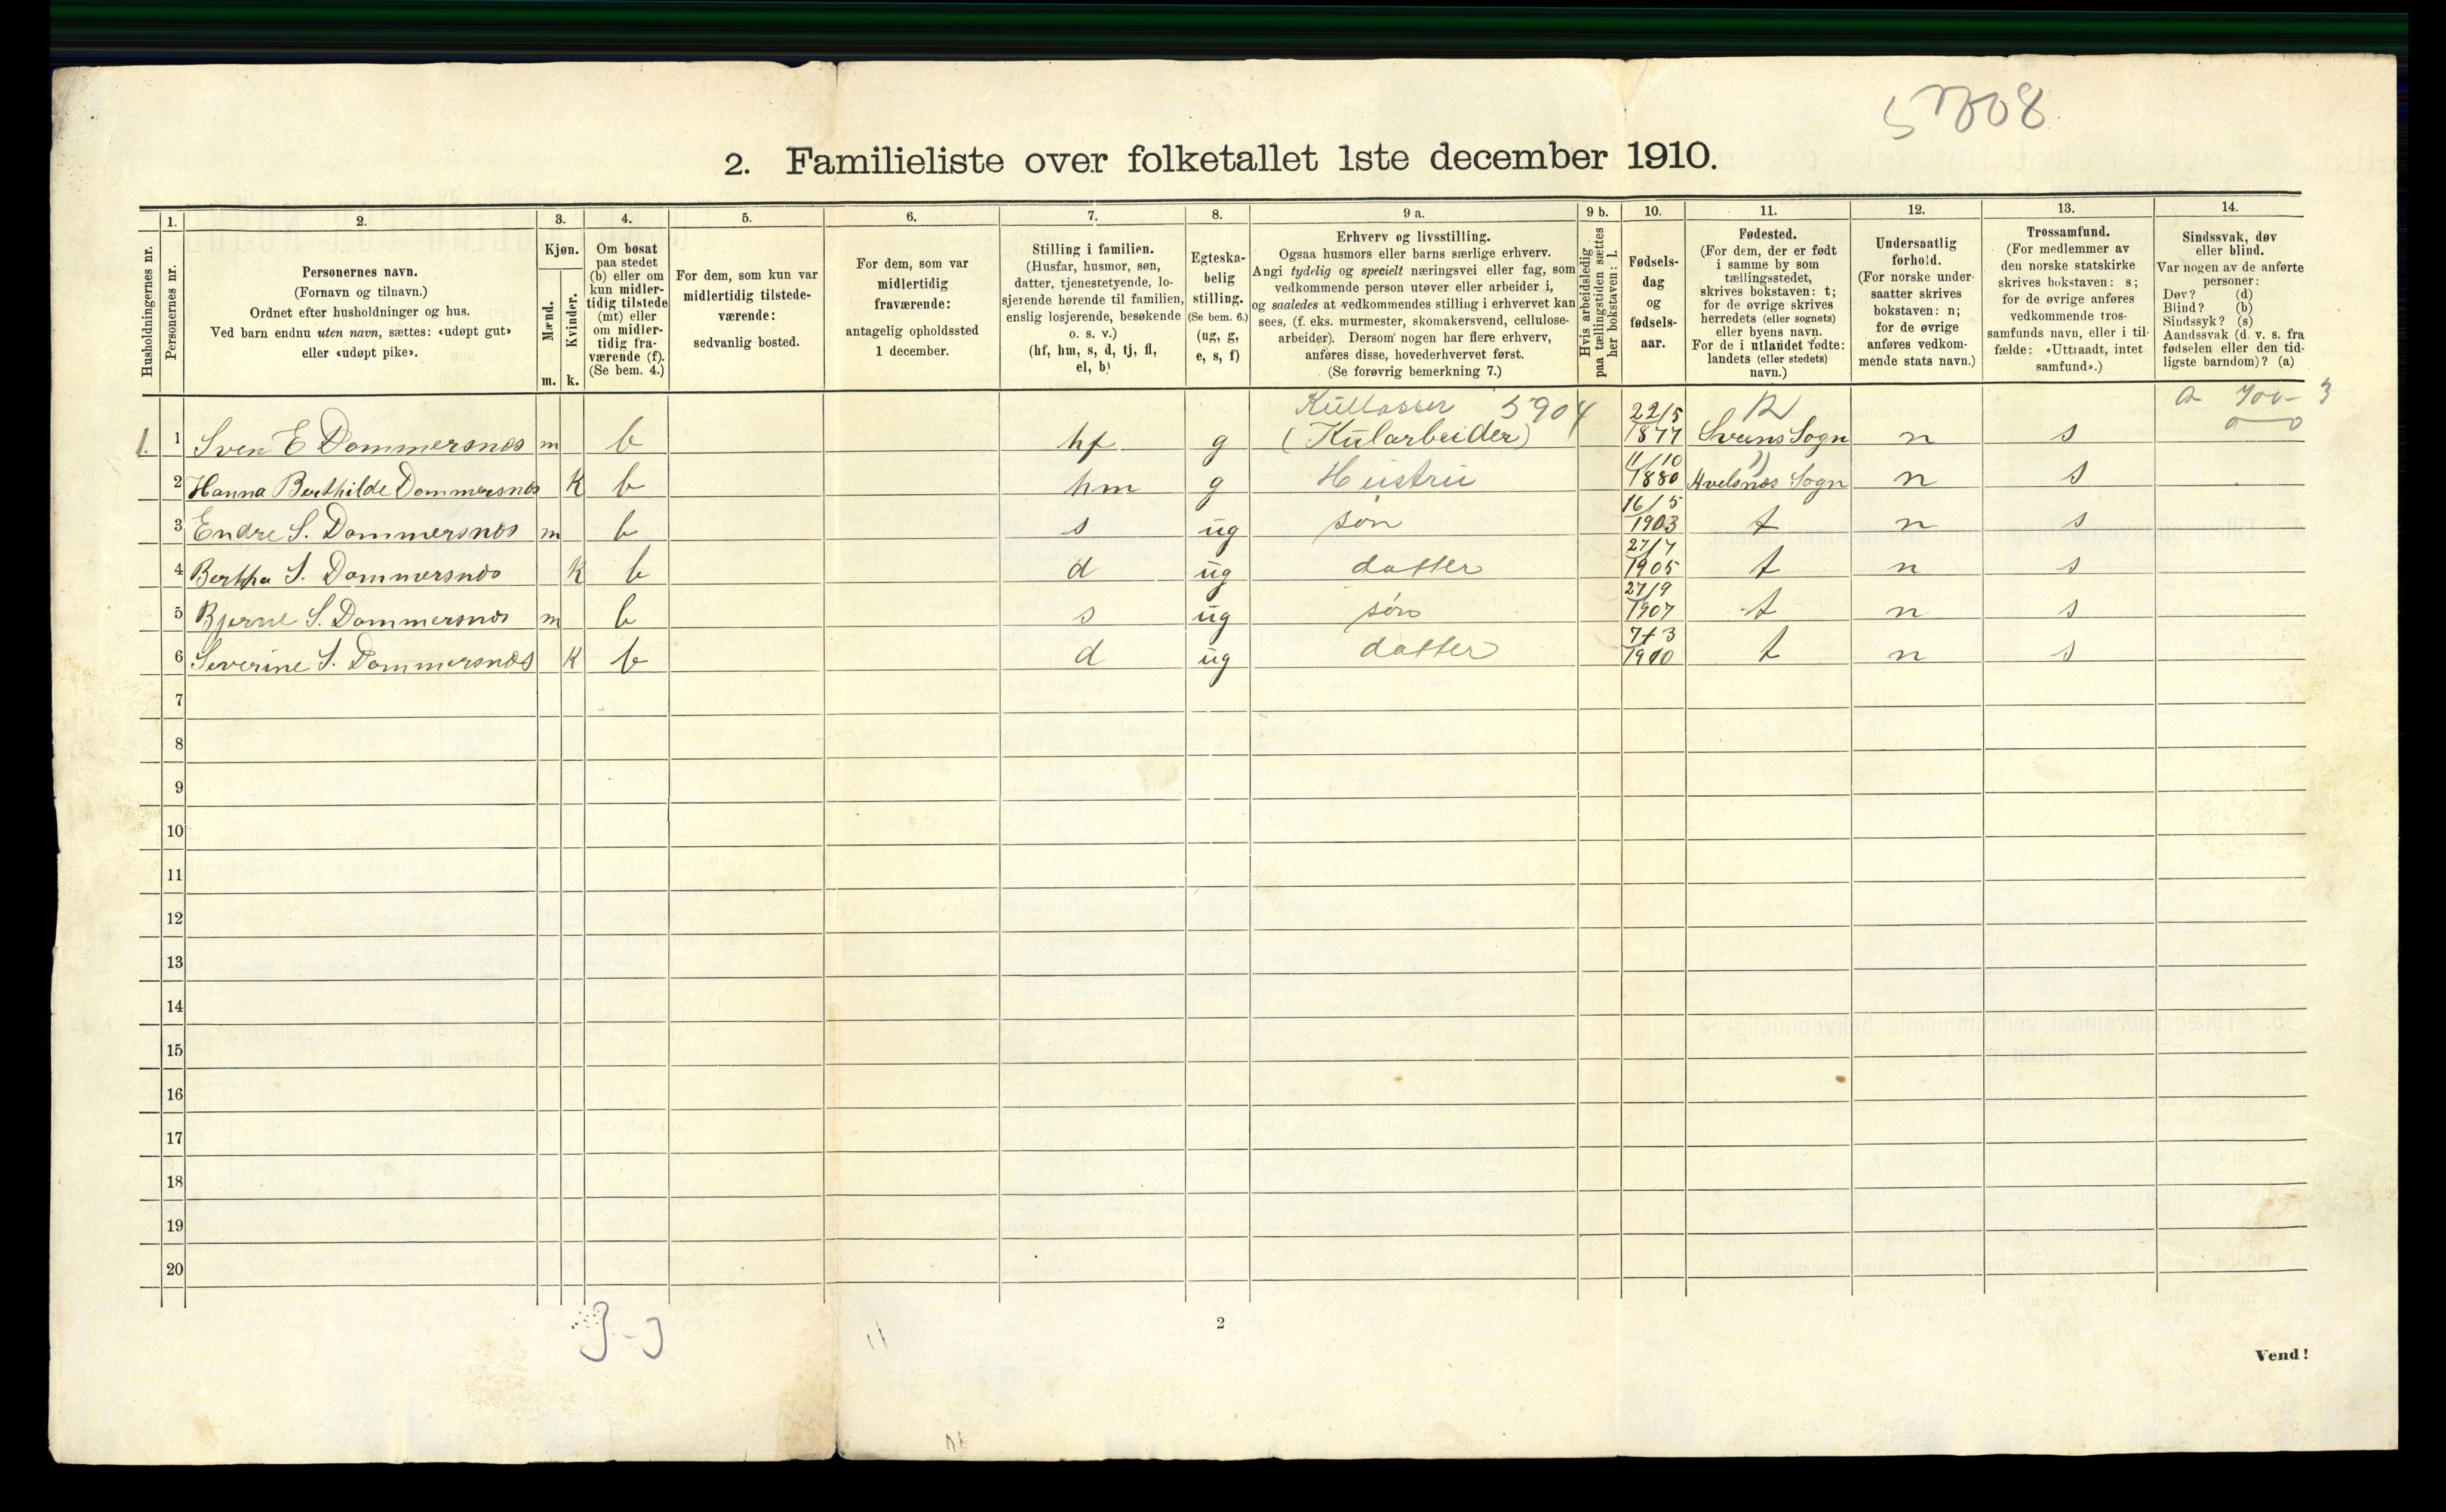 5708
2. Familieliste over folketallet 1ste december 1910.
1. 2. 3. 4. 5. 6. 7. 8. 9 a. 9 b. 10. 11. 12. 13. 14.
Husholdningernes nr.
Personernes nr.
Personernes navn.
(Fornavn og tilnavn.)
Ordnet efter husholdninger og hus.
Ved barn endnu uten navn, sættes: «udøpt gut»
eller «udøpt pike».
Kjøn.
Mænd.
Kvinder.
m. k.
Om bosat
paa stedet
(b) eller om
kun midler-
tidig tilstede
(mt) eller
om midler-
tidig fra-
værende (f).
(Se bem. 4.)
For dem, som kun var
midlertidig tilstede-
værende:
sedvanlig bosted.
For dem, som var
midlertidig
fraværende:
antagelig opholdssted
1 december.
Stilling i familien.
(Husfar, husmor, søn,
datter, tjenestetyende, lo-
sjerende hørende til familien,
enslig losjerende, besøkende
o. s. v.)
(hf, hm, s, d, tj, fl,
el, b)
Egteska-
belig
stilling.
(Se bem. 6.)
(ug, g,
e, s, f)
Erhverv og livsstilling.
Ogsaa husmors eller barns særlige erhverv.
Angi tydelig og specielt næringsvei eller fag, som
vedkommende person utøver eller arbeider i,
og saaledes at vedkommendes stilling i erhvervet kan
sees, (f. eks. murmester, skomakersvend, cellulose-
arbeider). Dersom nogen har flere erhverv,
anføres disse, hovederhvervet først.
(Se forøvrig bemerkning 7.)
Hvis arbeidsledig
paa tællingstiden sættes
her bokstaven: l.
Fødsels-
dag
og
fødsels-
aar.
Fødested.
(For dem, der er født
i samme by som
tællingsstedet,
skrives bokstaven: t;
for de øvrige skrives
herredets (eller sognets)
eller byens navn.
For de i utlandet fødte:
landets (eller stedets)
navn.)
Undersaatlig
forhold.
(For norske under-
saatter skrives
bokstaven: n;
for de øvrige
anføres vedkom-
mende stats navn.)
Trossamfund.
(For medlemmer av
den norske statskirke
skrives bokstaven: s;
for de øvrige anføres
vedkommende tros-
samfunds navn, eller i til-
fælde: «Uttraadt, intet
samfund».)
Sindssvak, døv
eller blind.
Var nogen av de anførte
personer:
Døv? (d)
Blind? (b)
Sindssyk? (s)
Aandssvak (d. v. s. fra
fødselen eller den tid-
ligste barndom)? (a)
Kullosser 5904
1. 1 Sven E Dommersnes m b hf g (Kularbeider) 22/5 1877 Svens Sogn n s
2 Hanna Berthilde Dommersnes K b hm g Hustru 11/10 1880 Avelsnes Sogn n s
3 Endre S. Dommersnes m b s ug søn 16/5 1903 t n s
4 Bertha S. Dommersnes K b d ug datter 27/7 1905 t n s
5 Bjarne S. Dommersnes m b s ug søn 27/9 1907 t n s
6 Severine S. Dommersnes K b d ug datter 7/3 1910 t n s
7
8
9
10
11
12
13
14
15
16
17
18
19
20
3-3
2
Vend!